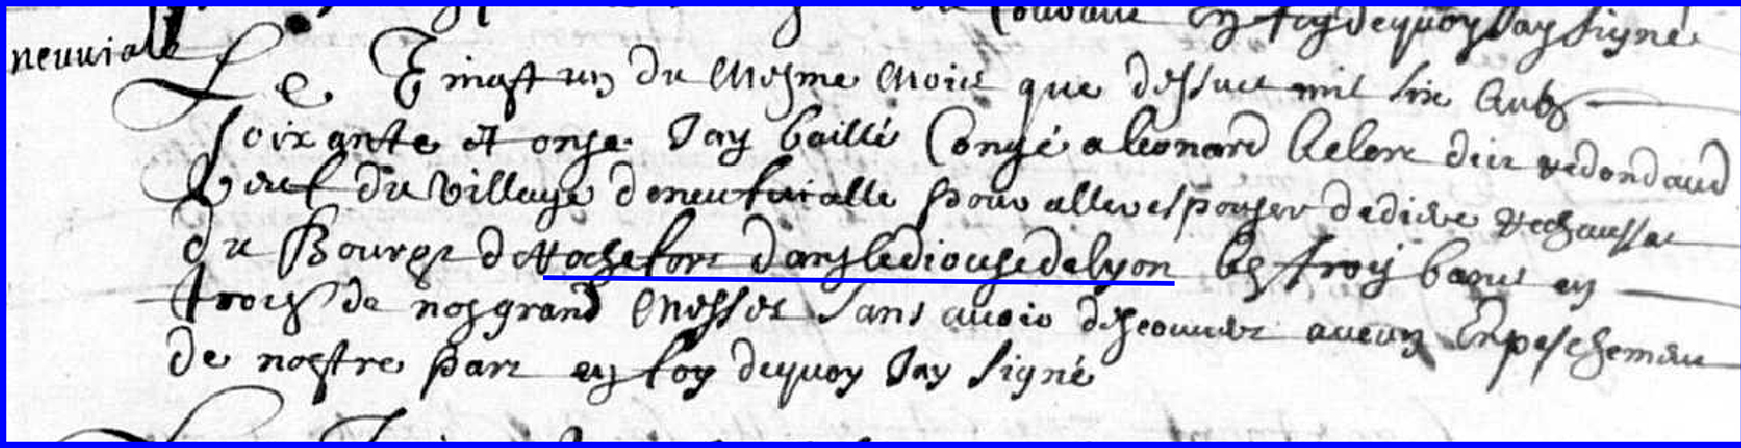 en foy dequoy Jay signé
neuuialle
Le Vingt un du mesme mois que dessus mil six cents
soixante et onze Jay baillé Congé a leonard leclerc dit redondaud
veuf du village de neufuialle pour aller espouser
du Bourg de Rochefort dans le diocese de lyon les troys bans en
trois de nos grand messes sans auoir descouuert aucun enpeschemant
de nostre part en foy dequoy Jay signé